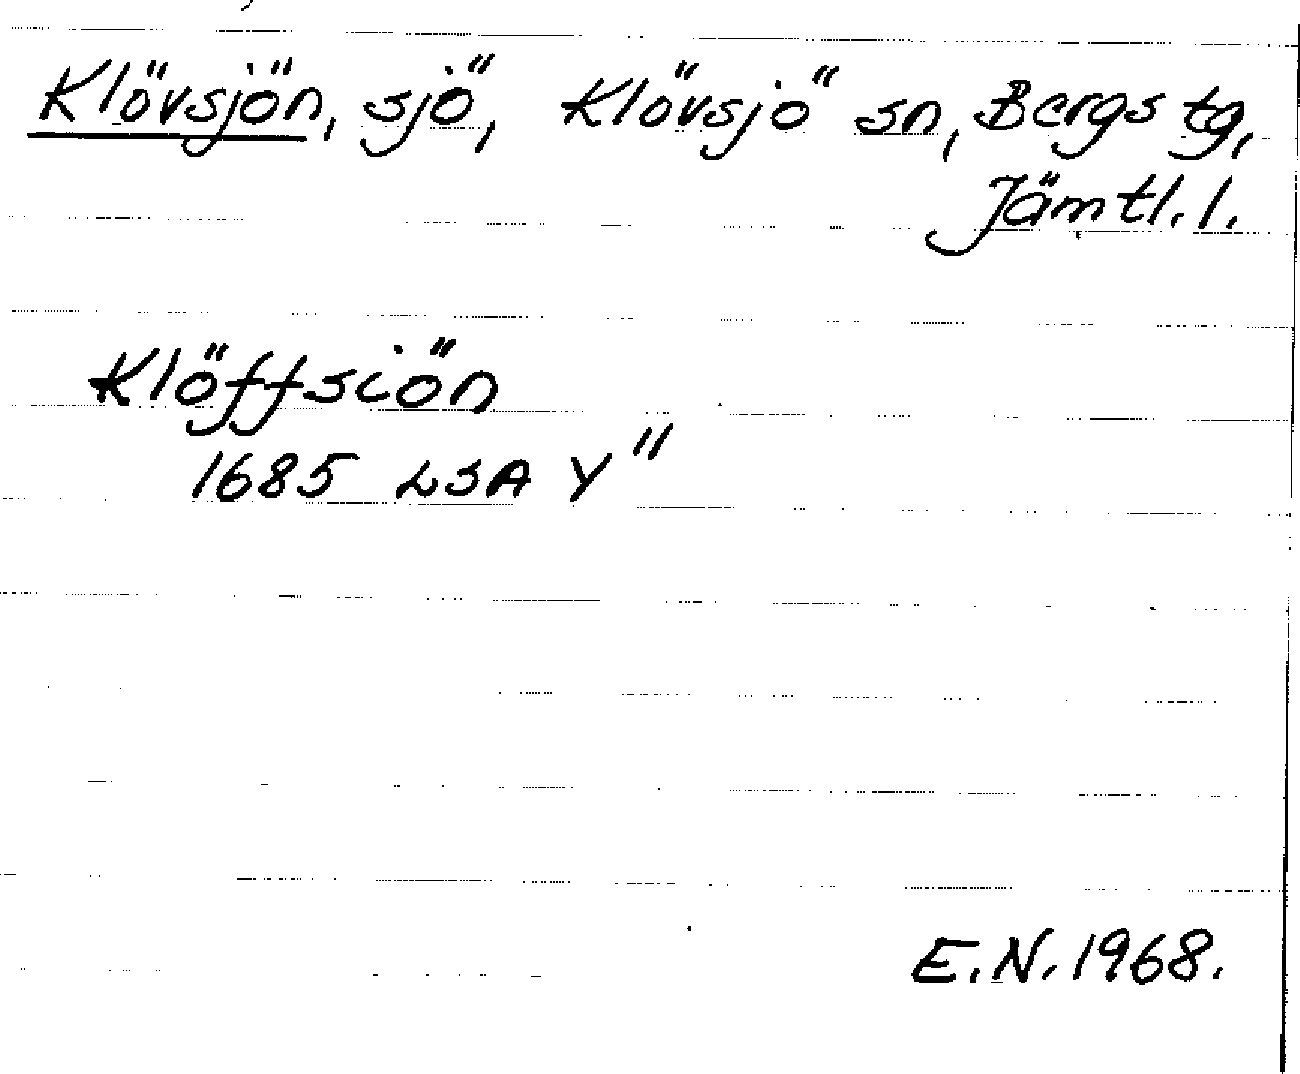 Klövsjön, sjö, Klövsjö sn, Bergs tg,
Jämtl. l.
Klöffsiön
1685 LSA Y"
E.N. 1968.